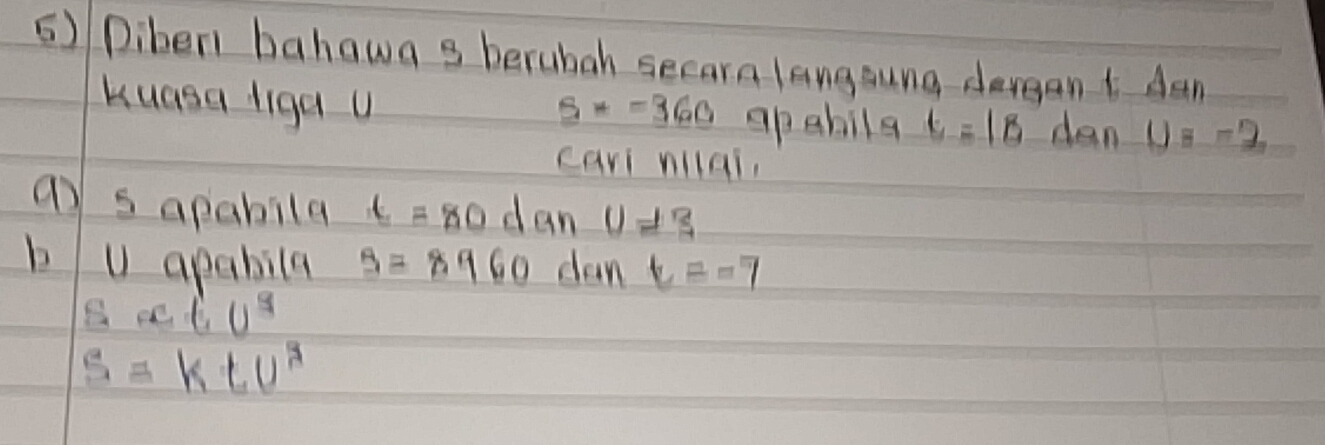 5) Diberi bahawa s berubah secara langsung dengan t dan
kuasa tiga U s = -360 apabila t = 18 dan U = -2
cari nilai.
a) s apabila t = 80 dan U = 3
b U apabila s = 8960 dan t = -7
s ∝ t U³
s = k t U³